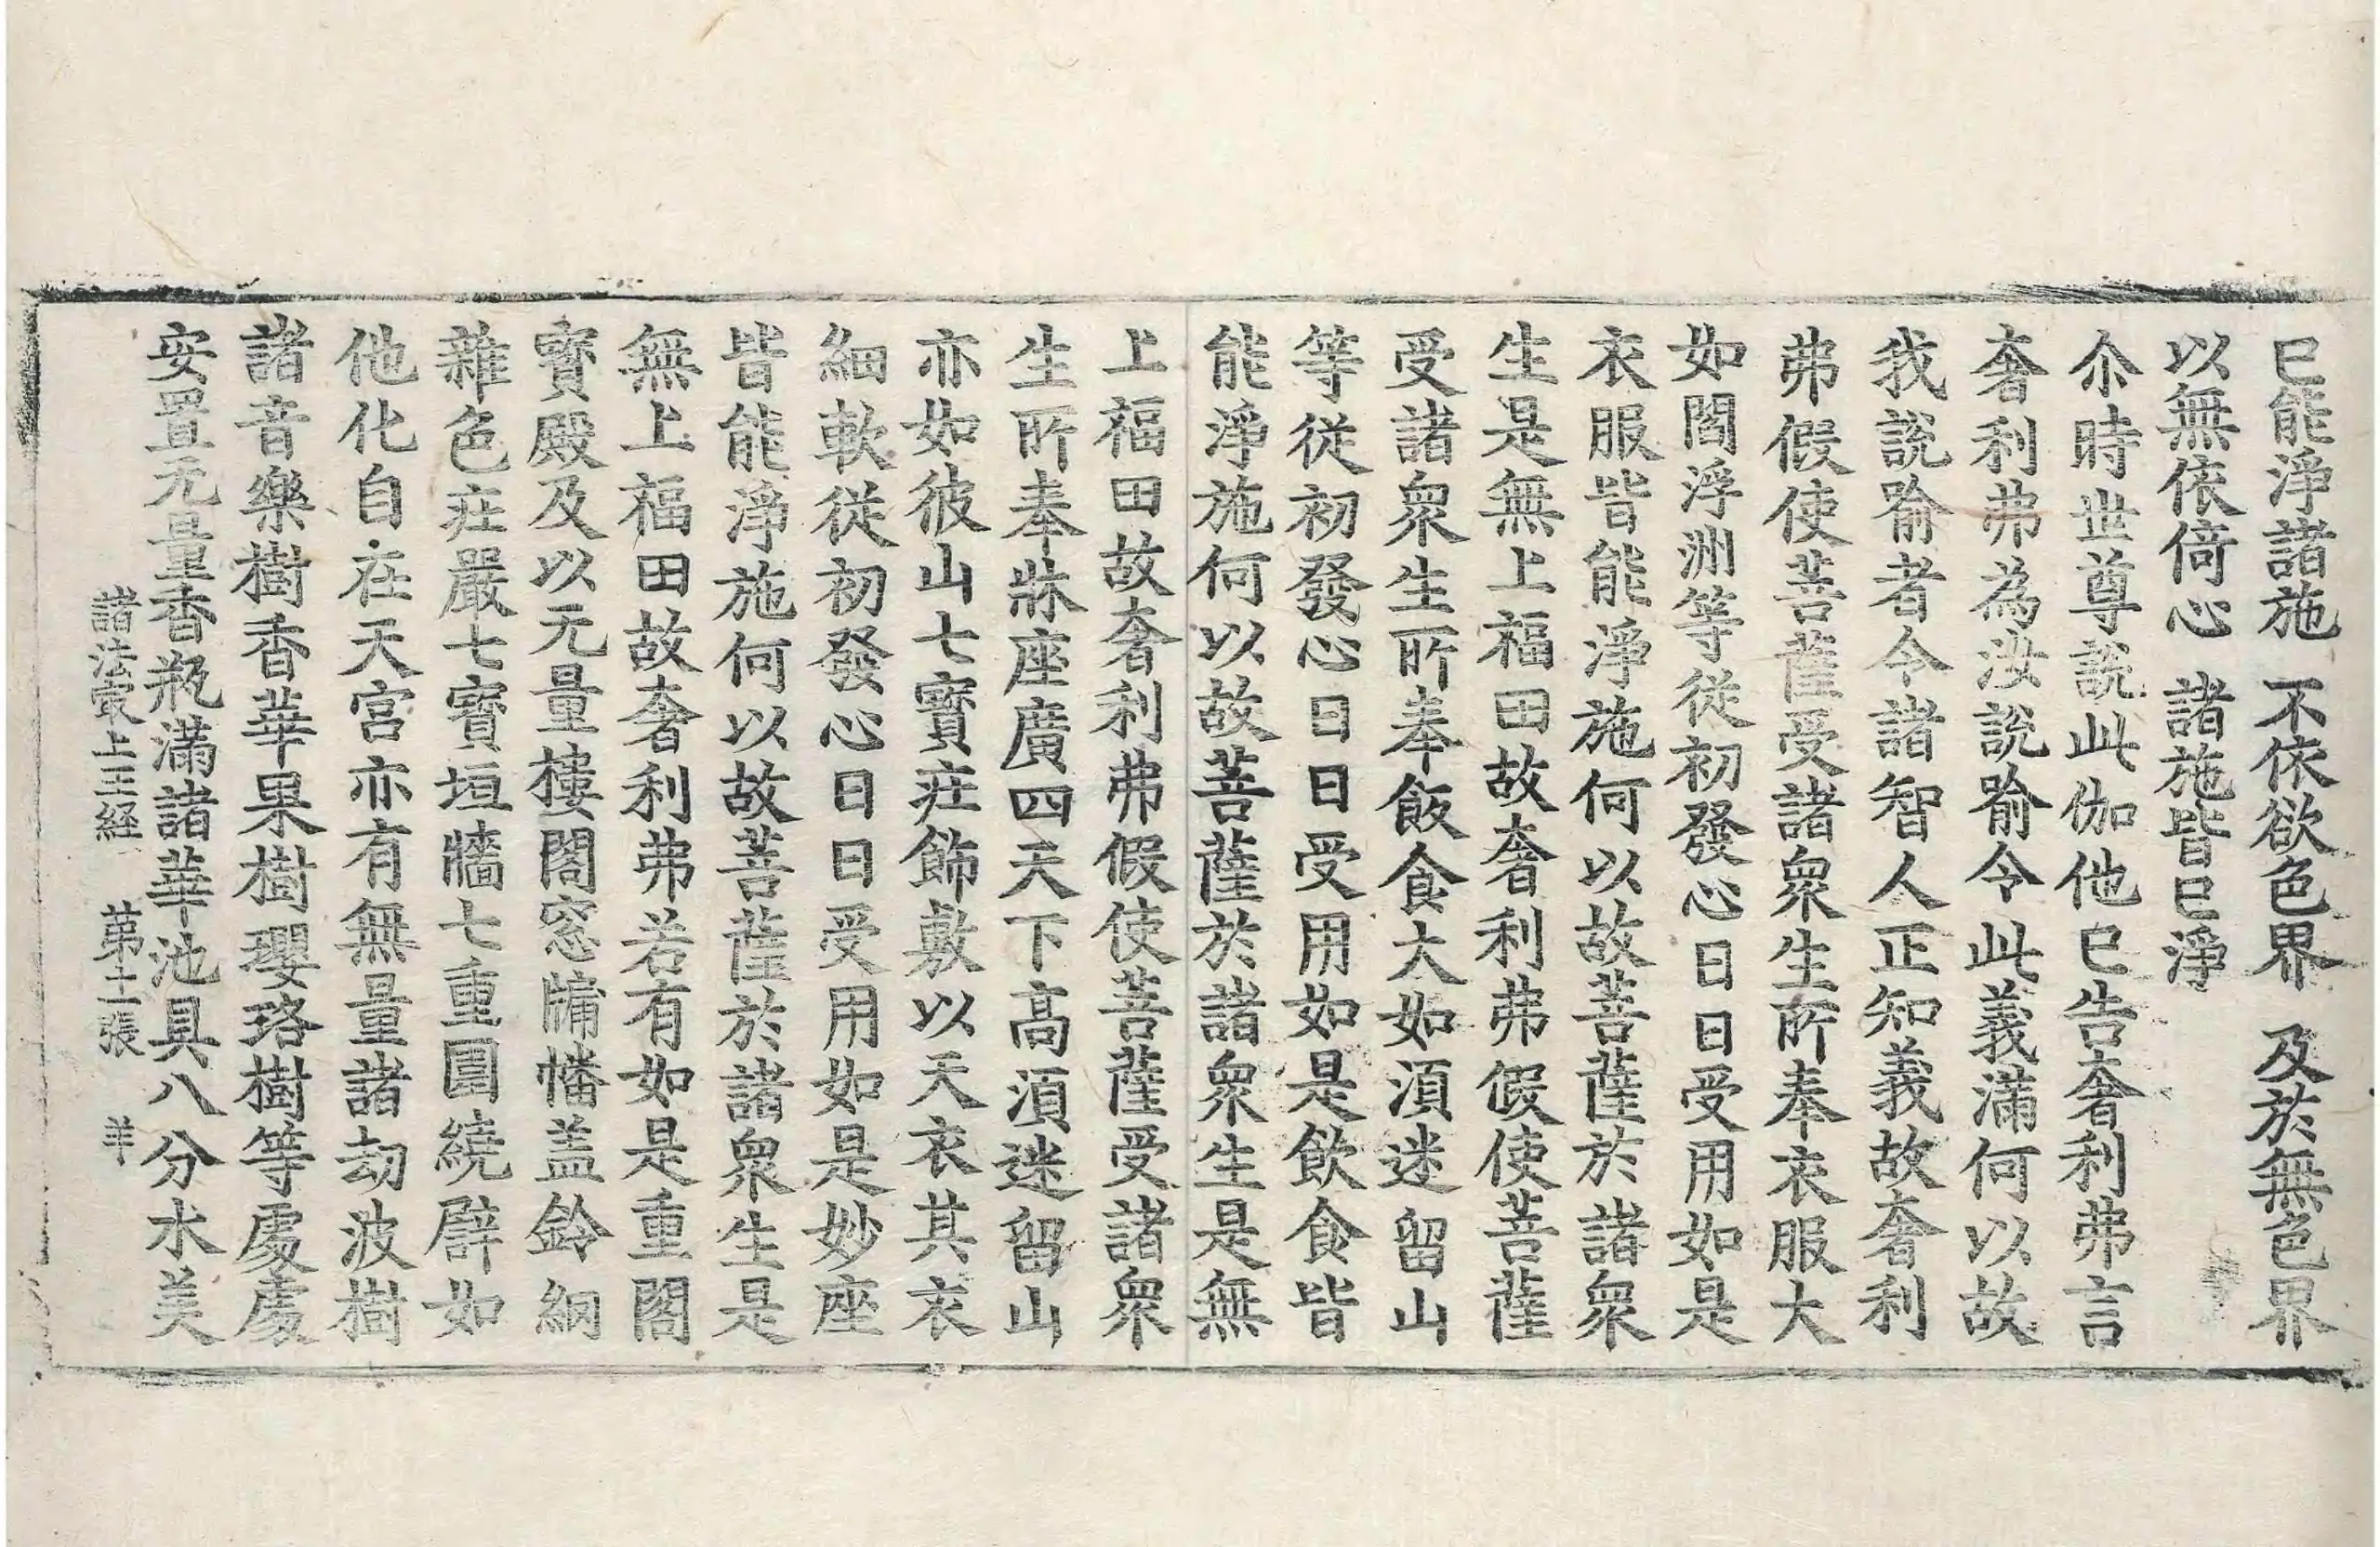 巳能淨諸施 不依欲色界 及於無色界
以無依倚心 諸施皆巳淨
尒時世尊說此伽他巳告奢利弗言
奢利弗為汝說喻令此義滿何以故
我說喻者令諸智人正知義故奢利
弗假使菩薩受諸衆生所奉衣服大
如閻浮洲等從初發心日日受用如是
衣服皆能淨施何以故菩薩於諸衆
生是無上福田故奢利弗假使菩薩
受諸衆生所奉飯食大如湏迷留山
等從初發心日日受用如是飲食皆
能淨施何以故菩薩於諸衆生是無
上福田故奢利弗假使菩薩受諸衆
生所奉牀座廣四天下高湏迷留山
亦如彼山七寶莊飾敷以天衣其衣
細軟從初發心日日受用如是妙座
皆能淨施何以故菩薩於諸衆生是
無上福田故奢利弗若有如是重閣
寶殿及以无量樓閣窓牗幡盖鈴網
雜色莊嚴七寶垣牆七重圍繞譬如
他化自在天宮亦有無量諸劫波樹
諸音樂樹香華果樹瓔珞樹等處處
安置无量香瓶滿諸華池具八分水美
諸法㝡上王經 第十一張 羊